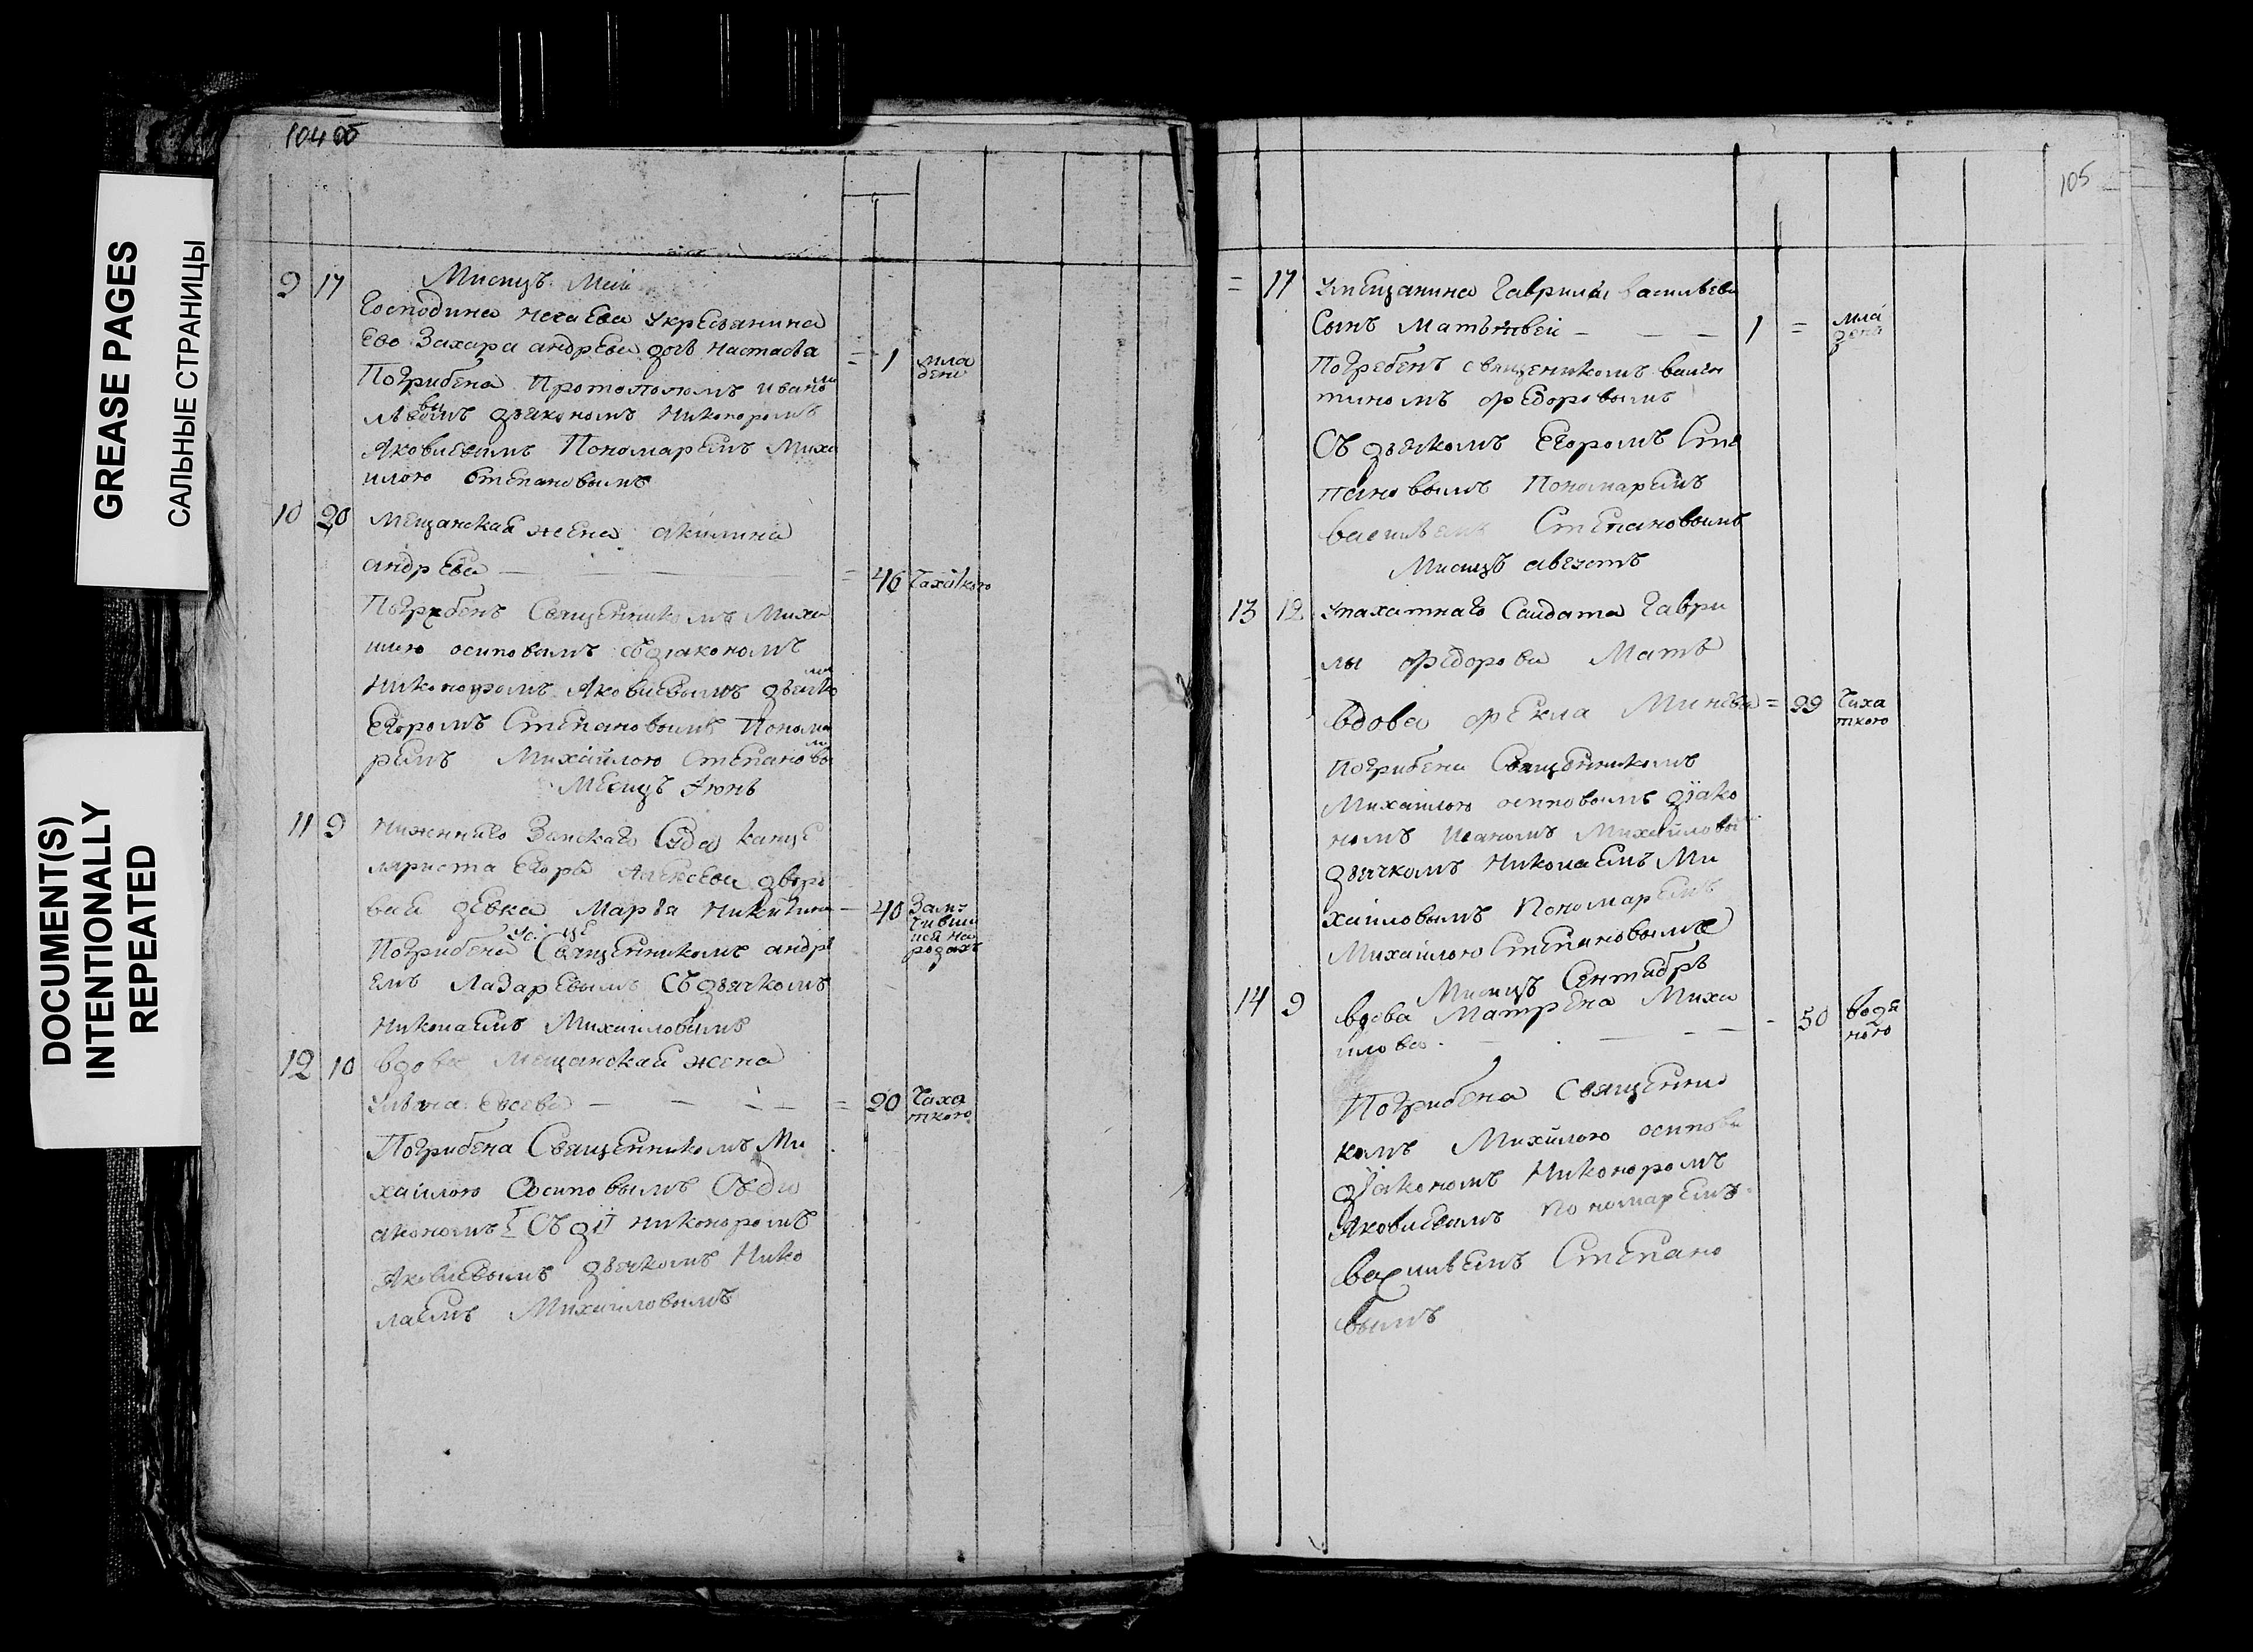 104 об
GREASE PAGES
САЛЬНЫЕ СТРАНИЦЫ
DOCUMENT(S)
INTENTIONALLY
REPEATED
9 17 Мисицъ Маи
Господина нехаева укресянина
ево Захара андреева дочь настасья = 1 мла
дени
Погрибена Протопопомъ ивано
дьякономъ никоноромъ
Яковлевымъ Пономаремъ Миха
илою Степановымъ
10 20 мещанская жена акилина
андреева — — — = 46 Чахоткою
Погрибенъ Священникомъ Миха
илою осиповымъ съ дiакономъ
Никоноромъ Яковлевымъ дьячко
мъ
Егоромъ Степановымъ Понома
ремъ Михайлою Степановы
мъ
Месицъ Июнь
11 9 нижннего Земскаго Суда канце
ляриста Егора Алексеева дворо
вая девка Марья Никитина — 40
Погрибена Священникомъ андре
емъ Лазаревымъ Съ дьячкомъ
Николаемъ Михаиловымъ
12 10 вдова Мещанская жена
Ульяна Евсева — — — = 20 Чаха
ткою
Погрибена Священникомъ Ми
хаилою Осиповымъ Съ ди
акономъ никоноромъ
Яковлевымъ дьячкомъ Нико
лаемъ Михаиловымъ
105
= 17 Умещанина Гаврилы васильева
Сынъ Матьввеи — — — 1 = мла
дени
Погребенъ священикомъ вален
тиномъ федоровымъ
Съ дьячкомъ Егоромъ Сте
пановымъ Пономаремъ
васильемъ Степановымъ
Мисицъ августъ
13 12 Упахатнаго Салдата Гаври
лы федорова Мать
вдова фекла Минева = 99 Чиха
ткою
погрибена Священникомъ
Михаилою осиповымъ дiако
номъ Иваномъ Михайловы
дьячкомъ Николаемъ Ми
хаиловымъ Пономаремъ
Михаилою Степановымъ
Мисицъ Сентябрь
14 9 вдова Матрена Миха
илова — — — 50 водя
ною
Погрибена Священни
комъ Михилою осипов
дiакономъ Никоноромъ
Яковлевымъ пономаремъ
васильемъ Степано
вымъ